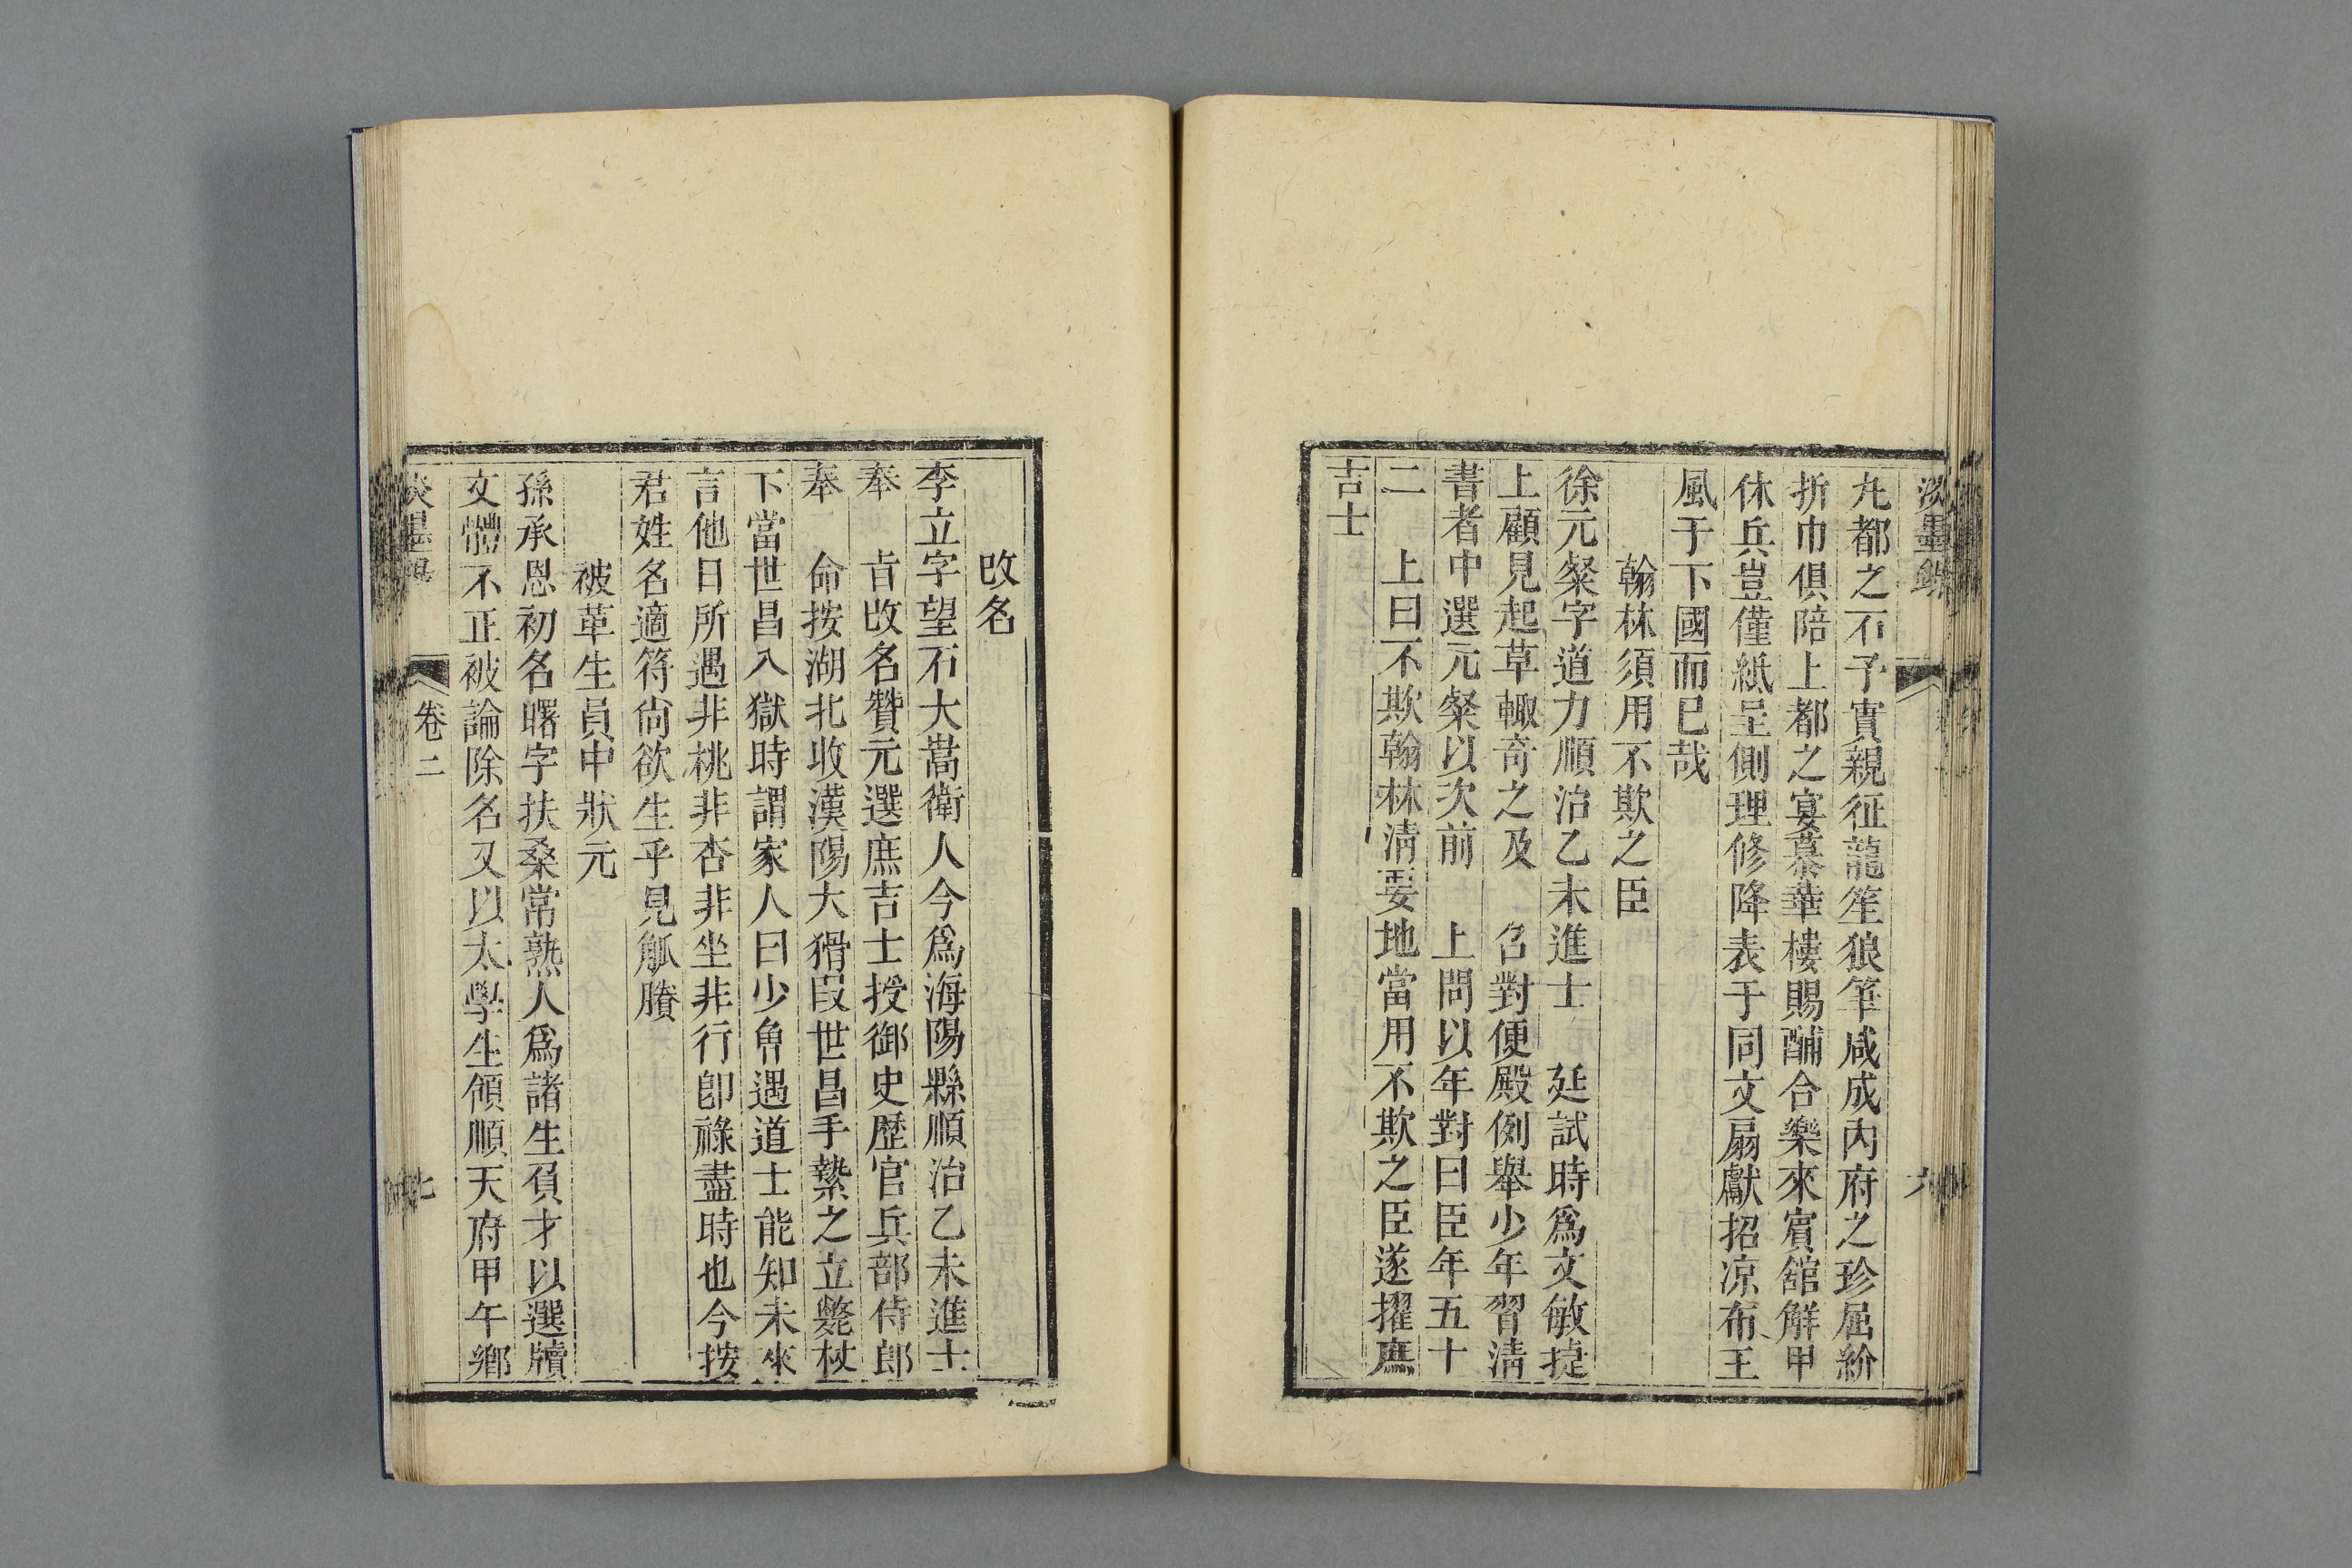 淡墨錄
六
九都之石予實親征龍笙狼筆咸成內府之珍屈紒
折巾俱陪上都之宴慕華樓賜酺合樂來賓舘解甲
休兵豈僅紙呈側理修降表于同文扇獻招凉布王
風于下國而已哉
翰林須用不欺之臣
徐元粲字道力順治乙未進士　廷試時爲文敏捷
上顧見起草輙奇之及　召對便殿例舉少年習淸
書者中選元粲以次前　上問以年對曰臣年五十
二　上曰不欺翰林淸要地當用不欺之臣遂擢庶
吉士
改名
李立字望石大嵩衛人今爲海陽縣順治乙未進士
奉　旨改名贊元選庶吉士授御史歷官兵部侍郎
奉　命按湖北收漢陽大猾叚世昌手縶之立斃杖
下當世昌入獄時謂家人曰少曾遇道士能知未來
言他日所遇非桃非杏非坐非行卽祿盡時也今按
君姓名適符尙欲生乎見觚賸
被革生員中狀元
孫承恩初名曙字扶桑常熟人爲諸生負才以選牘
文體不正被論除名又以太學生領順天府甲午鄉
淡墨錄
卷二
七